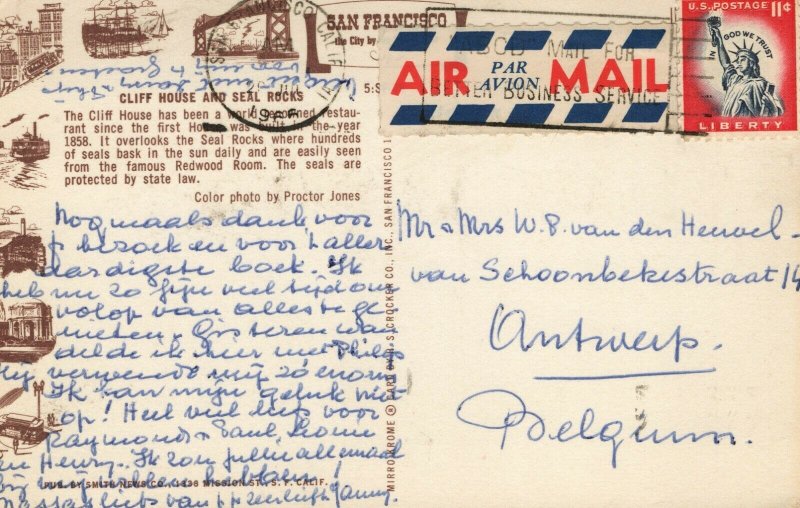 SAN FRANCISCO
the City by
SAN FRANCISCO CALIF
AIR PAR AVION MAIL
MAIL FOR
BETTER BUSINESS SERVICE
U.S. POSTAGE 11¢
IN GOD WE TRUST
LIBERTY
CLIFF HOUSE AND SEAL ROCKS
The Cliff House has been a world renowned restau-
rant since the first House was built in the year
1858. It overlooks the Seal Rocks where hundreds
of seals bask in the sun daily and are easily seen
from the famous Redwood Room. The seals are
protected by state law.
Color photo by Proctor Jones
Nogmaals dank voor
bezoek en voor 't aller
aardigste boek. Ik
heb nu zo fijn veel tijd om
volop van alles te ge-
nieten. Gisteren wan
delde ik hier met Philip
Hij verwende mij zo enorm
Ik kan mijn geluk niet
op! Heel veel liefs voor
Raymond + Paul,
en Henry. Ik zou jullie allemaal
bij
liefs van
MIRRO-KROME ® CARD BY H. S. CROCKER CO., INC., SAN FRANCISCO 1
PUB. BY SMITH NEWS CO., 1336 MISSION ST., S. F. CALIF.
Mr + Mrs W.P. van den Heuvel -
van Schoonbekestraat 14
Antwerp.
Belgium.